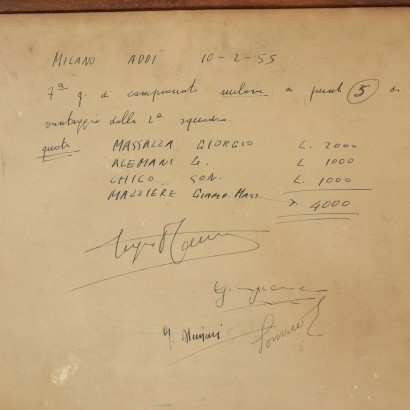 MILANO ADDÍ 10-2-55
7ª g. di campionato milan a punti 5 di
vantaggio dalla 2ª squadra.
quote MASSALLA GIORGIO L. 2000
ALEMANI G. L. 1000
CHICO GON. L. 1000
MALLIERE GIAMP. MASS. 4000